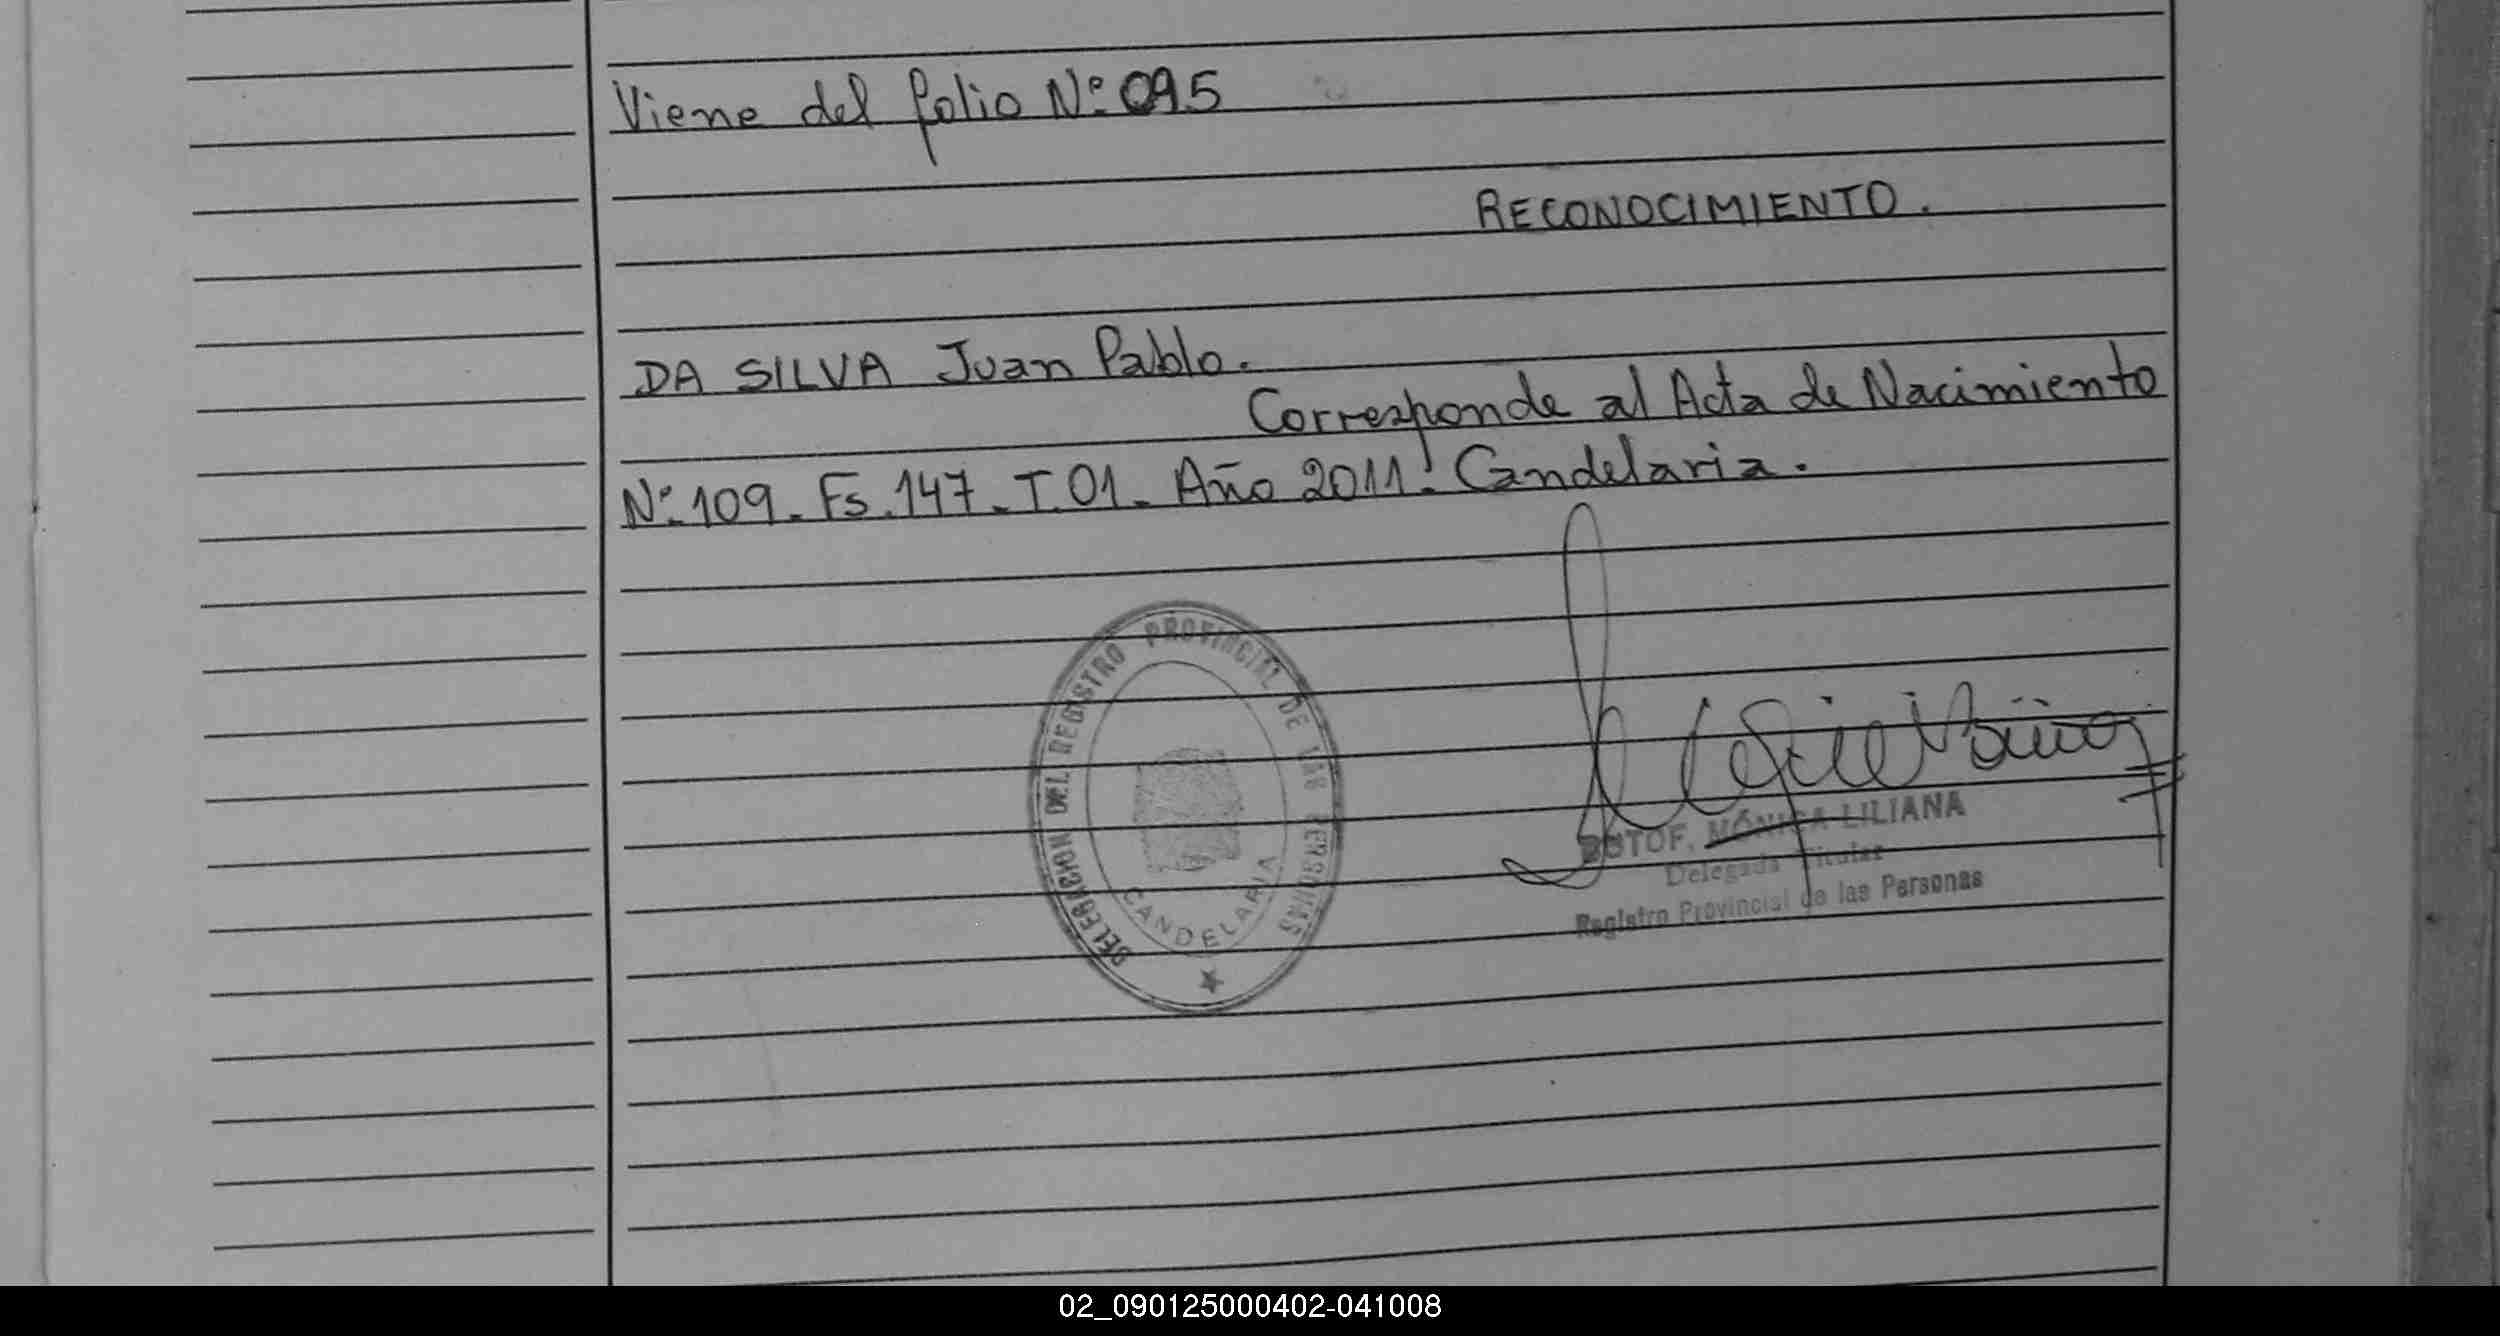 Viene del folio Nº 095
RECONOCIMIENTO.
DA SILVA Juan Pablo.
Corresponde al Acta de Nacimiento
Nº 109. Fs. 147. T. 01. Año 2011. Candelaria.
DELEGACION DEL REGISTRO PROVINCIAL DE LAS PERSONAS
CANDELARIA
MÓNICA LILIANA
Delegada Titular
Registro Provincial de las Personas
02_090125000402-041008